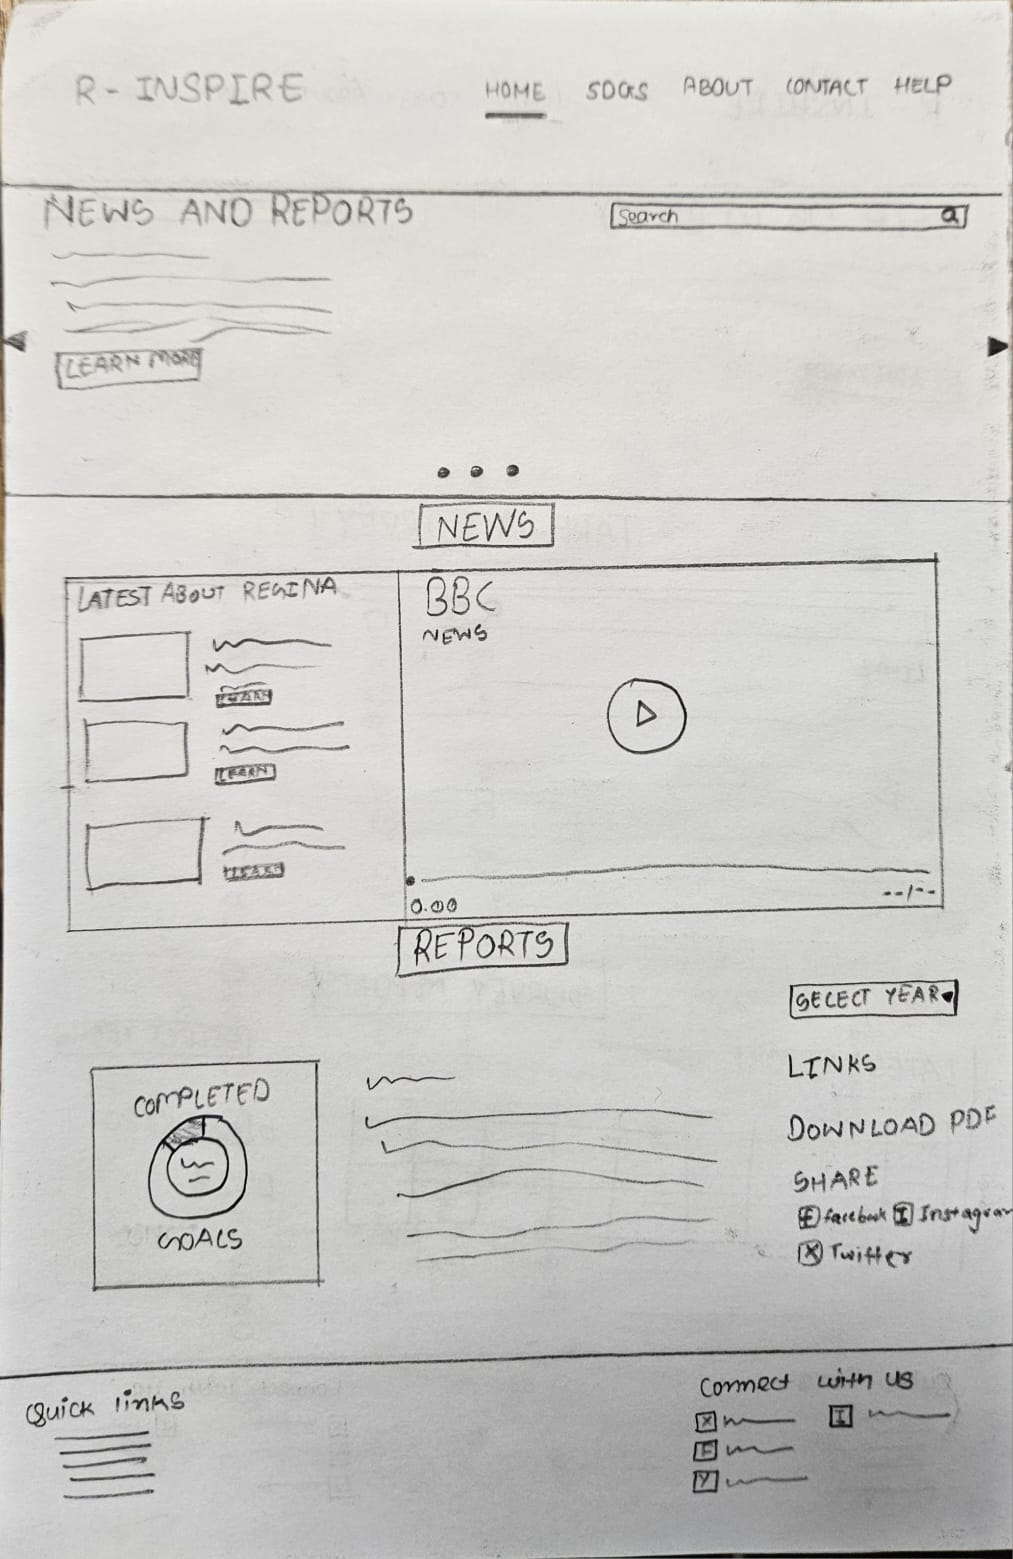 R - INSPIRE
HOME SDGS ABOUT CONTACT HELP
NEWS AND REPORTS
Search
LEARN MORE
NEWS
LATEST ABOUT REGINA
LEARN
LEARN
LEARN
BBC
NEWS
0.00
--/--
REPORTS
SELECT YEAR
COMPLETED
GOALS
LINKS
DOWNLOAD PDF
SHARE
F facebook I Instagram
X Twitter
Quick links
Connect with us
X I
F
Y